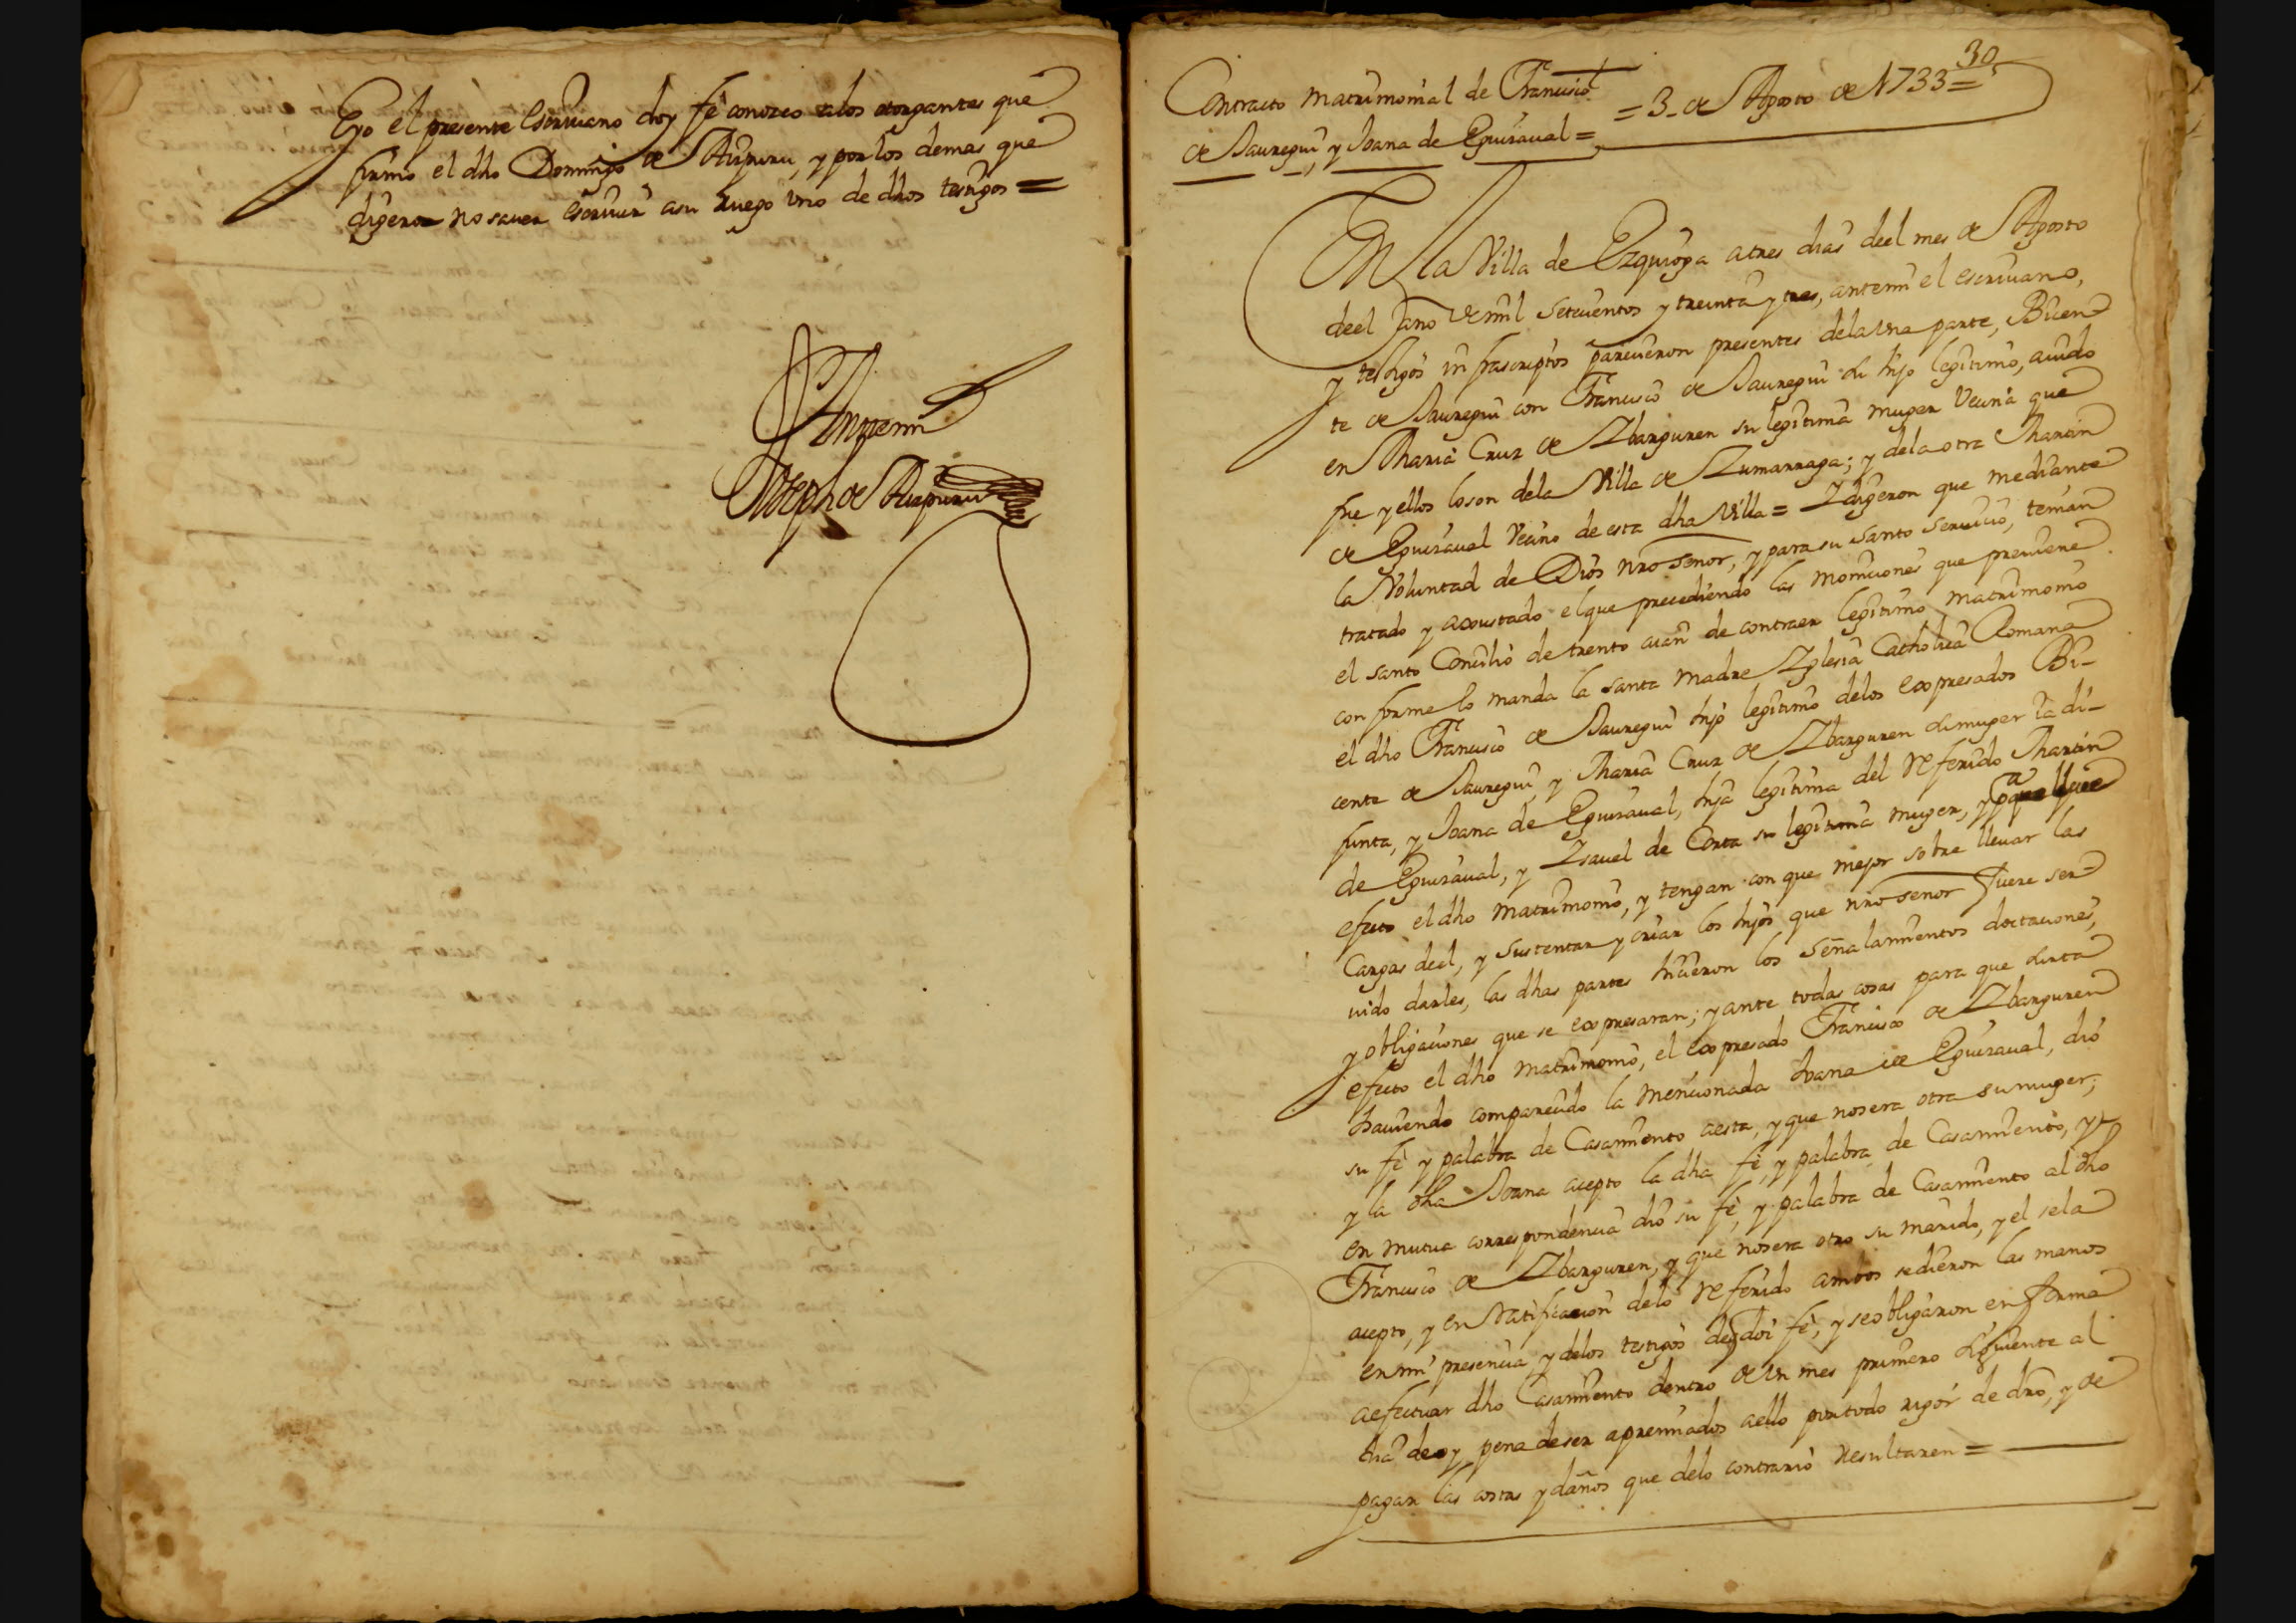 Eyo el presente Escriuano doy fe conozco alos otorgantes que
firmo el dho Domingo de Aizpuru, y por los demas que
digeron no sauer escriuir asu ruego vno de dhos testigos =
Antemi
Joseph de Aizpuru
30
Contracto matrimonial de Francisco
= 3 de Agosto de 1733 =
de Jauregui, y Joana de Eguizaual =
En la Villa de Ezquioga atres dias deel mes de Agosto
deel año de mil setecientos y treinta y tres, antemi el escriuano,
y testigos infrascriptos parecieron presentes dela vna parte, Bicen
te de Jauregui con Francisco de Jauregui su hijo legitimo, auido
en Maria Cruz de Ybarguren su legitima muger vecina que
fue y ellos loson dela Villa de Zumarraga; y dela otra Martin
de Eguizaual vecino de esta dha Villa = Y digeron que mediante
la Voluntad de Dios nro señor, y para su santo seruicio, tenian
tratado y axustado el que precediendo las moniciones que preuiene
el santo Concilio de trento aian de contraer legitimo matrimonio
conforme lo manda la santa madre Yglesia Catholica Romana
el dho Francisco de Jauregui hijo legitimo delos expresados Bi-
cente de Jauregui, y Maria Cruz de Ybarguren su muger ya di-
funta, y Joana de Eguizaual, hija legitima del referido Martin
de Eguizaual, y Ysauel de Corta su legitima muger, y pa que
efecto el dho matrimonio, y tengan con que mejor sobre lleuar las
Cargas deel, y sustentar y criar los hijos que nro señor fuere ser
uido darles, las dhas partes hicieron los señalamientos dotaciones,
y obligaciones que se expresaran; y ante todas cosas para que surta
efecto el dho matrimonio, el expresado Francisco de Ybarguren
hauiendo comparecido la mencionada Joana de Eguizaual, dio
su fe y palabra de Casamiento aesta, y que nosera otra su muger;
y la dha Joana acepto la dha fe, y palabra de Casamiento, y
en mutua correspondencia dio su fe, y palabra de Casamiento al dho
Francisco de Ybarguren, y que nosera otro su marido, y el sela
acepto, y en Ratificacion delo referido ambos sedieron las manos
enmi presencia y delos testigos de q doi fe, y seobligaron en forma
aefectuar dho Casamiento dentro de un mes primero siguiente al
dia de oy pena deser apremiados aello portodo rigor de dro, y de
pagar las costas y daños que delo contrario Resultaren =